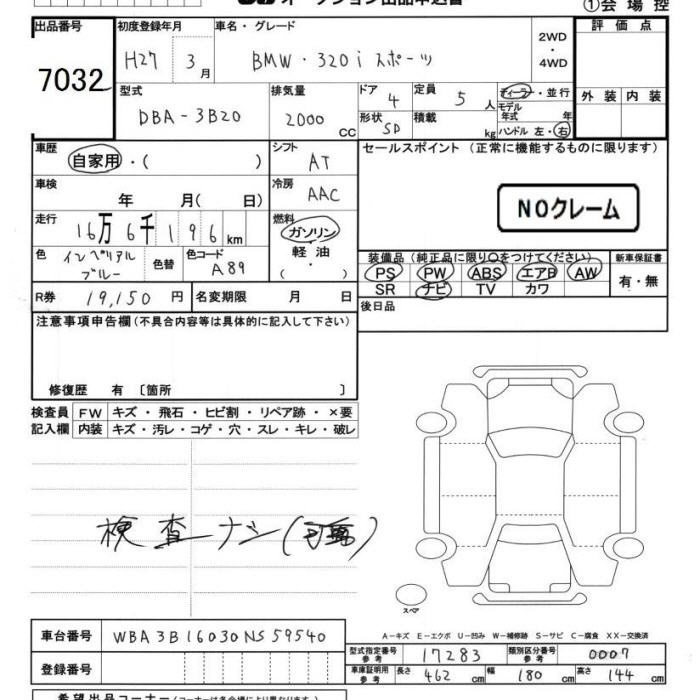 オークション出品申込書
①会場控
出品番号 初度登録年月 車名・グレード 評価点
7032 H27 3月 BMW・320i スポーツ 2WD・4WD
型式 排気量 ドア 定員 ディーラー・並行 外装 内装
DBA-3B20 2000 CC 4 5人 モデル年式 年
形状 SD 積載 kg ハンドル 左・右
車歴 シフト セールスポイント(正常に機能するものに限ります)
自家用・( ) AT
車検 冷房
年 月( 日) AAC
NOクレーム
走行 燃料
16万6千196km ガソリン
軽油
・
( )
色 インペリアルブルー 色替 色コード A89
装備品(純正品に限り○をつけてください) 新車保証書
PS PW ABS エアB AW 有・無
SR ナビ TV カワ
R券 19,150円 名変期限 月 日 後日品
注意事項申告欄(不具合内容等は具体的に記入して下さい)
修復歴 有〔箇所 〕
検査員 FW キズ・飛石・ヒビ割・リペア跡・×要
記入欄 内装 キズ・汚レ・コゲ・穴・スレ・キレ・破レ
検査ナシ
スペア
A-キズ E-エクボ U-凹み W-補修跡 S-サビ C-腐食 XX-交換済
車台番号 WBA3B16030NS59540
型式指定番号 参考 17283 類別区分番号 参考 0007
登録番号
車庫証明用 参考 長さ 462cm 幅 180cm 高さ 144cm
希望出品コーナー(コーナーは各会場により異なります)